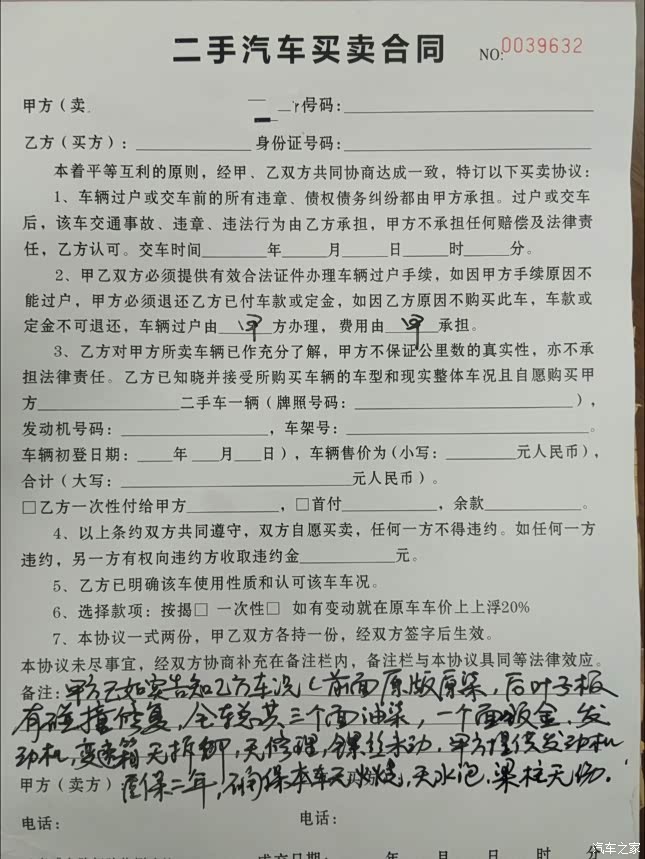 二手汽车买卖合同 NO:0039632
甲方（卖 号码：
乙方（买方）： 身份证号码：
本着平等互利的原则，经甲、乙双方共同协商达成一致，特订以下买卖协议：
1、车辆过户或交车前的所有违章、债权债务纠纷都由甲方承担。过户或交车
后，该车交通事故、违章、违法行为由乙方承担，甲方不承担任何赔偿及法律责
任，乙方认可。交车时间____年____月____日____时____分。
2、甲乙双方必须提供有效合法证件办理车辆过户手续，如因甲方手续原因不
能过户，甲方必须退还乙方已付车款或定金，如因乙方原因不购买此车，车款或
定金不可退还，车辆过户由 甲 方办理，费用由 甲 承担。
3、乙方对甲方所卖车辆已作充分了解，甲方不保证公里数的真实性，亦不承
担法律责任。乙方已知晓并接受所购买车辆的车型和现实整体车况且自愿购买甲
方____二手车一辆（牌照号码：____），
发动机号码：____，车架号：____。
车辆初登日期：____年____月____日），车辆售价为(小写：____元人民币)，
合计（大写：____元人民币）。
□乙方一次性付给甲方____，□首付____，余款____。
4、以上条约双方共同遵守，双方自愿买卖，任何一方不得违约。如任何一方
违约，另一方有权向违约方收取违约金____元。
5、乙方已明确该车使用性质和认可该车车况。
6、选择款项：按揭□ 一次性□ 如有变动就在原车车价上上浮20%
7、本协议一式两份，甲乙双方各持一份，经双方签字后生效。
本协议未尽事宜，经双方协商补充在备注栏内，备注栏与本协议具同等法律效应。
备注：甲方已如实告知乙方车况（前面原版原漆，后叶子板
有碰撞修复，全车总共三个面油漆，一个面钣金，发
动机，变速箱无拆卸，无修理，螺丝未动，甲方提供发动机
甲方（卖方） 质保二年，确保本车无火烧，无水泡，梁柱无伤。
电话： 电话：
成交日期： 年 月 日 时 分
汽车之家